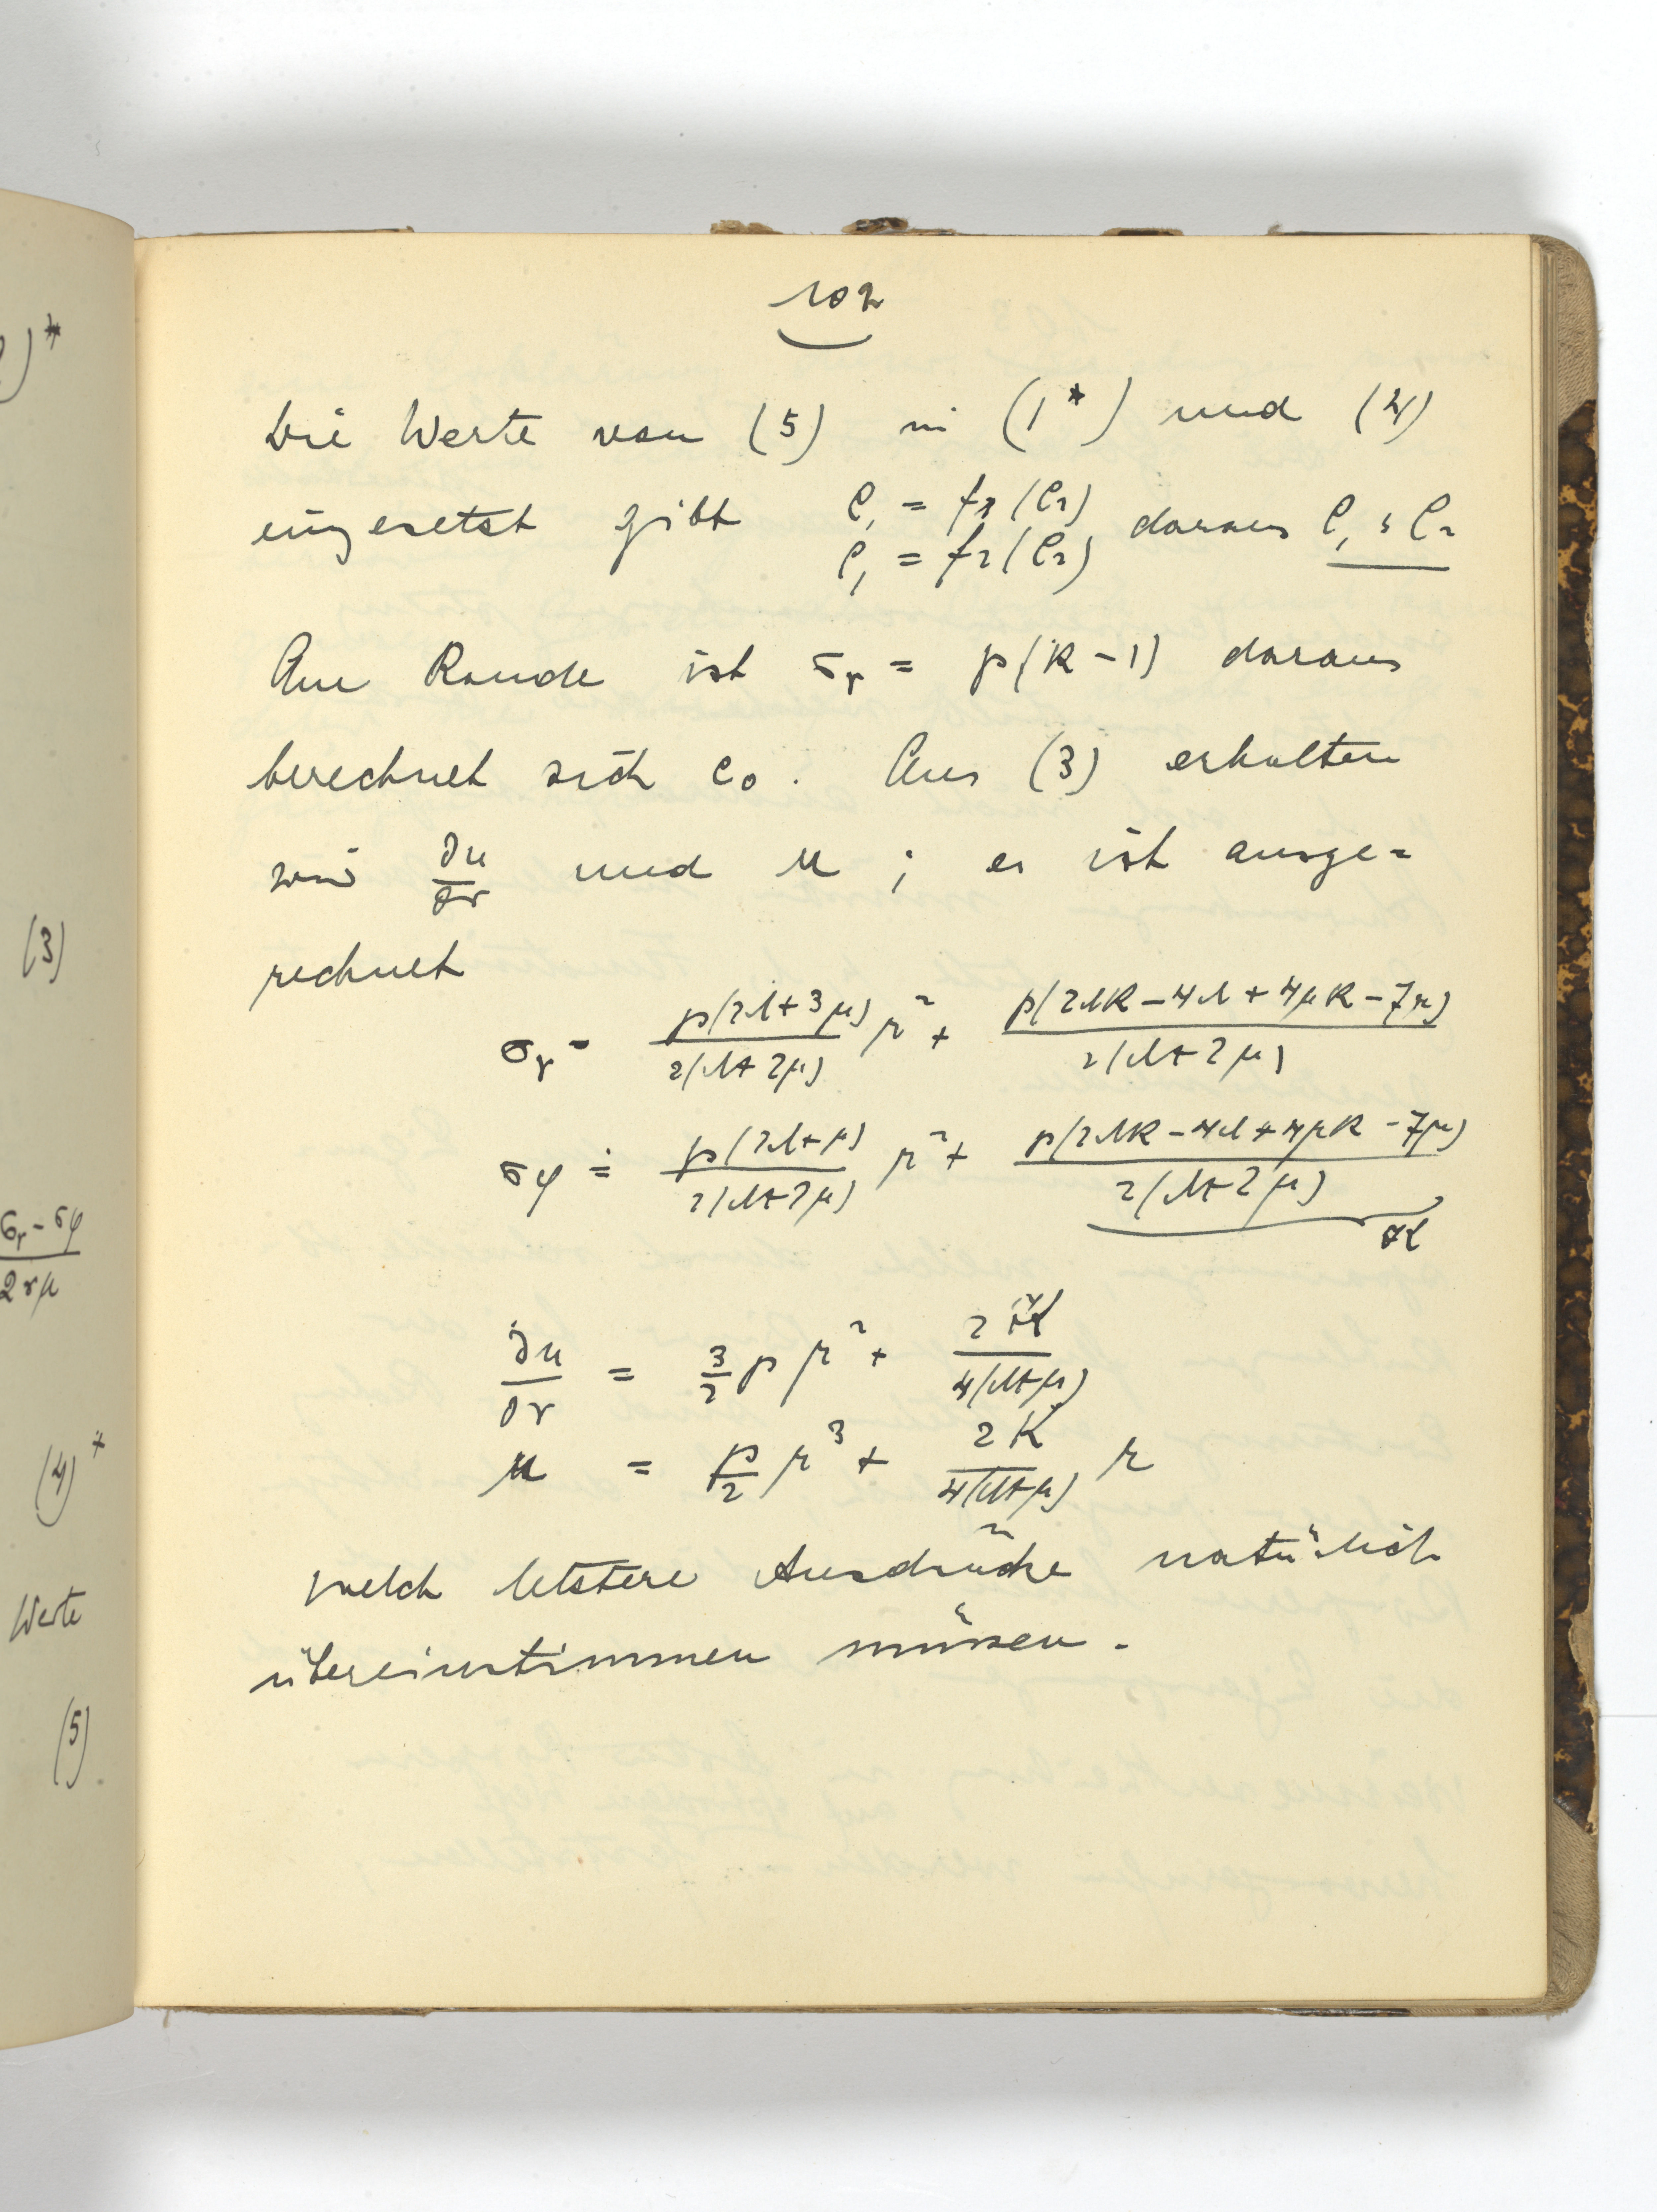 102
Die Werte von (5) in (1*) und (4)
eingesetzt gibt C₁ = f₁(C₂) daraus C₁, C₂
C₁ = f₂(C₂)
Am Rande ist σᵣ = p(k-1) daraus
berechnet sich C₀. Aus (3) erhalten
wir ∂u/∂r und u ; es ist ausge=
rechnet
σᵣ = p(2λ+3μ)/2(λ+2μ) r² + p(2λk-4λ+4μk-7μ)/2(λ+2μ)
σφ = p(2λ+μ)/2(λ+2μ) r² + p(2λk-4λ+4μk-7μ)/2(λ+2μ)
K
∂u/∂r = 3/2 p r² + 2K/4(λ+μ)
u = p/2 r³ + 2K/4(λ+μ) r
welch letztere Ausdrücke natürlich
übereinstimmen müssen.
)*
(3)
σᵣ-σφ/2rμ
(4)*
Werte
(5)